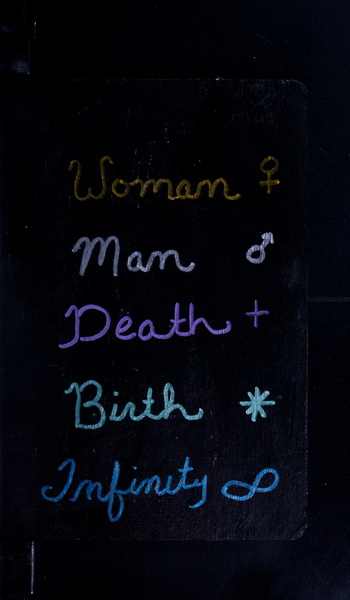 Woman ♀
Man ♂
Death +
Birth *
Infinity ∞